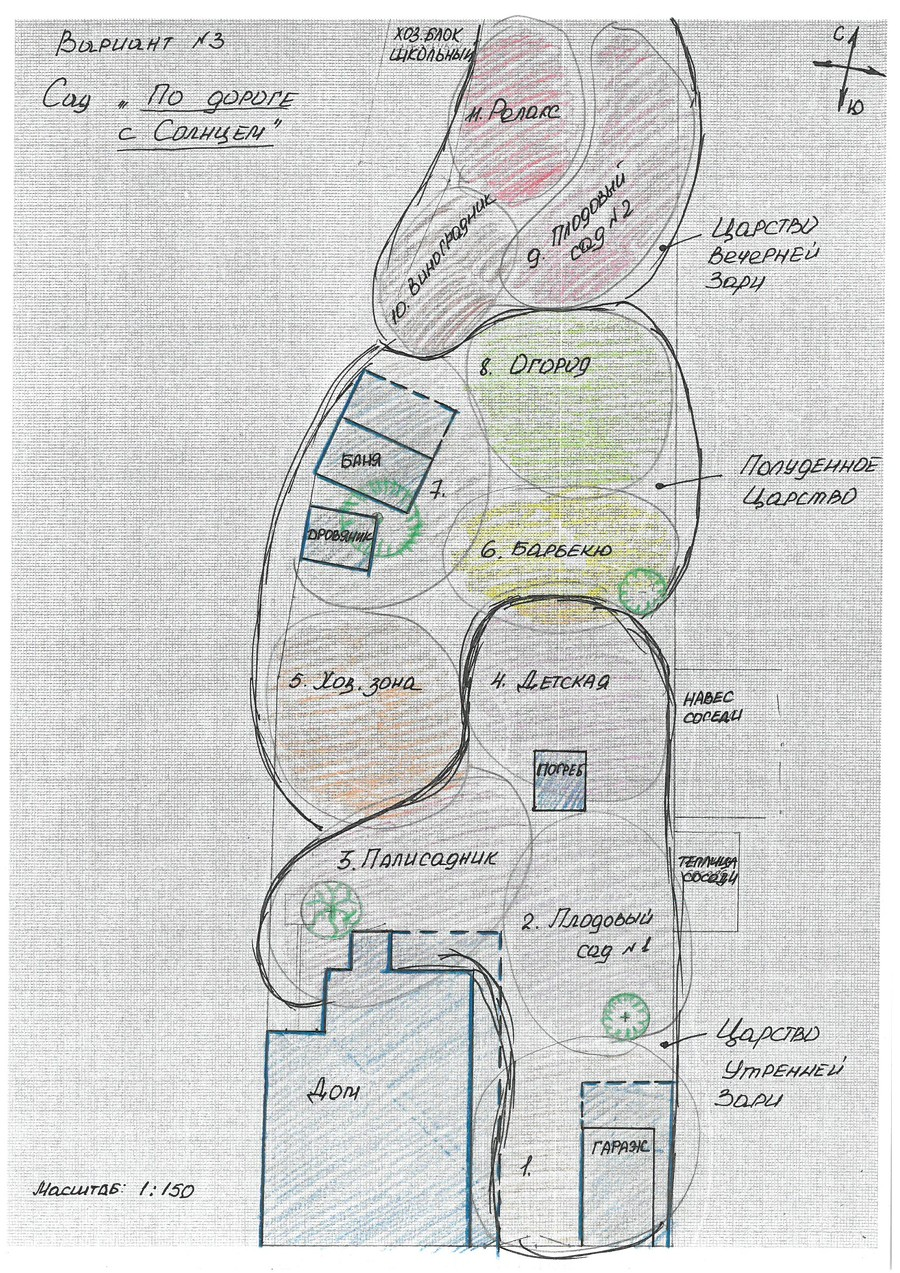 Вариант №3
Сад „По дороге
с Солнцем"
ХОЗ.БЛОК
ШКОЛЬНЫЙ
С
Ю
11. Релакс
9. Плодовый
сад №2
10. Виноградник
Царство
Вечерней
Зари
8. Огород
БАНЯ
7.
ДРОВЯНИК
Полуденное
Царство
6. Барбекю
5. Хоз. зона
4. Детская
НАВЕС
СОСЕДИ
ПОГРЕБ
3. Палисадник
ТЕПЛИЦА
СОСЕДИ
2. Плодовый
сад №1
Царство
Утренней
Зари
Дом
ГАРАЖ
1.
Масштаб: 1:150